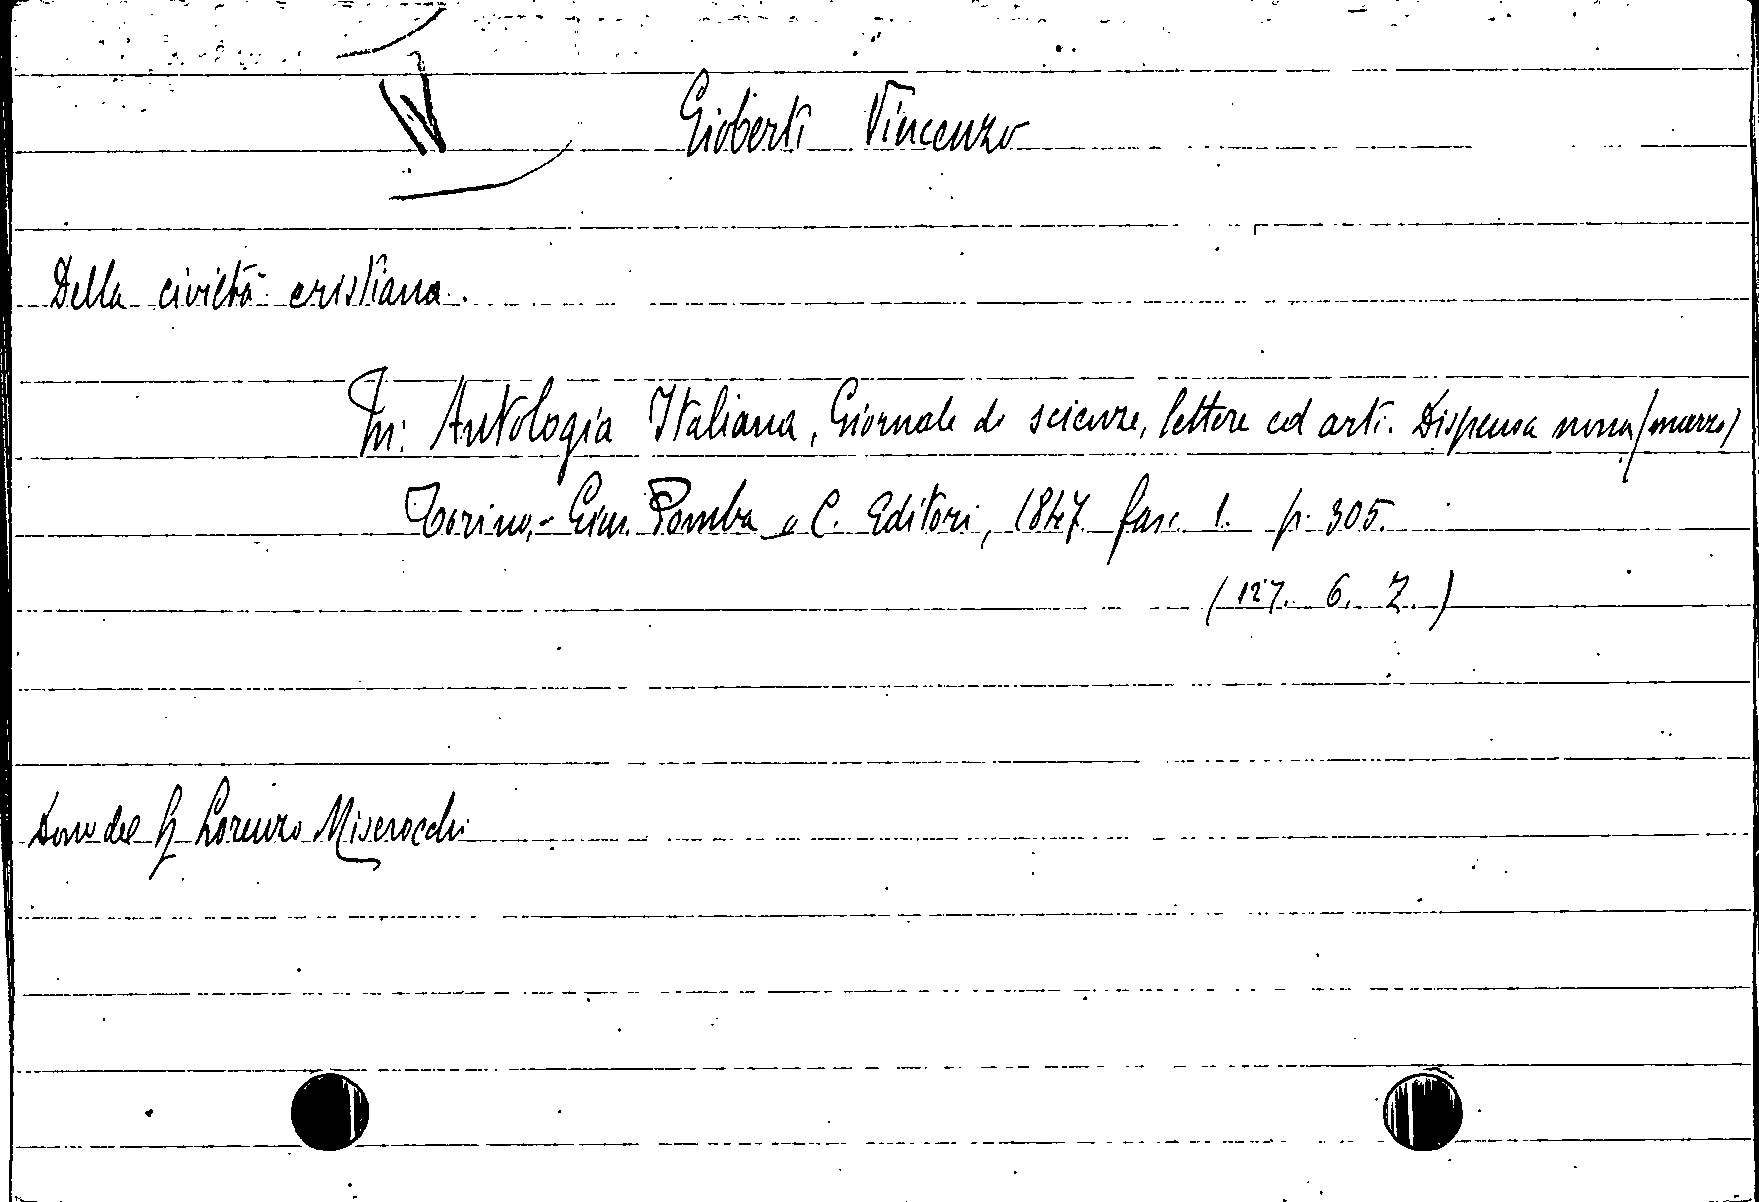 Gioberti Vincenzo
Della civiltà cristiana.
In: Antologia Italiana, Giornale di scienze, lettere ed arti. Dispensa nona (marzo)
Torino,- Gius. Pomba e C. Editori, 1847. fasc. 1. p. 305.
(127. 6. Z.)
Dono del Lorenzo Miserocchi